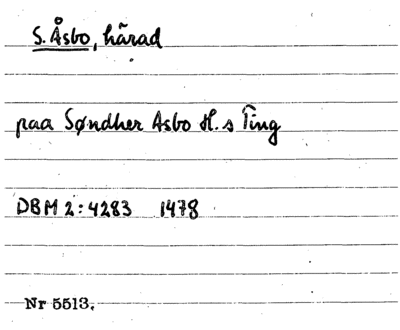 S. Åsbo, härad
paa Søndher Asbo H.s Ting
DBM 2:4283 1478
Nr 5513.